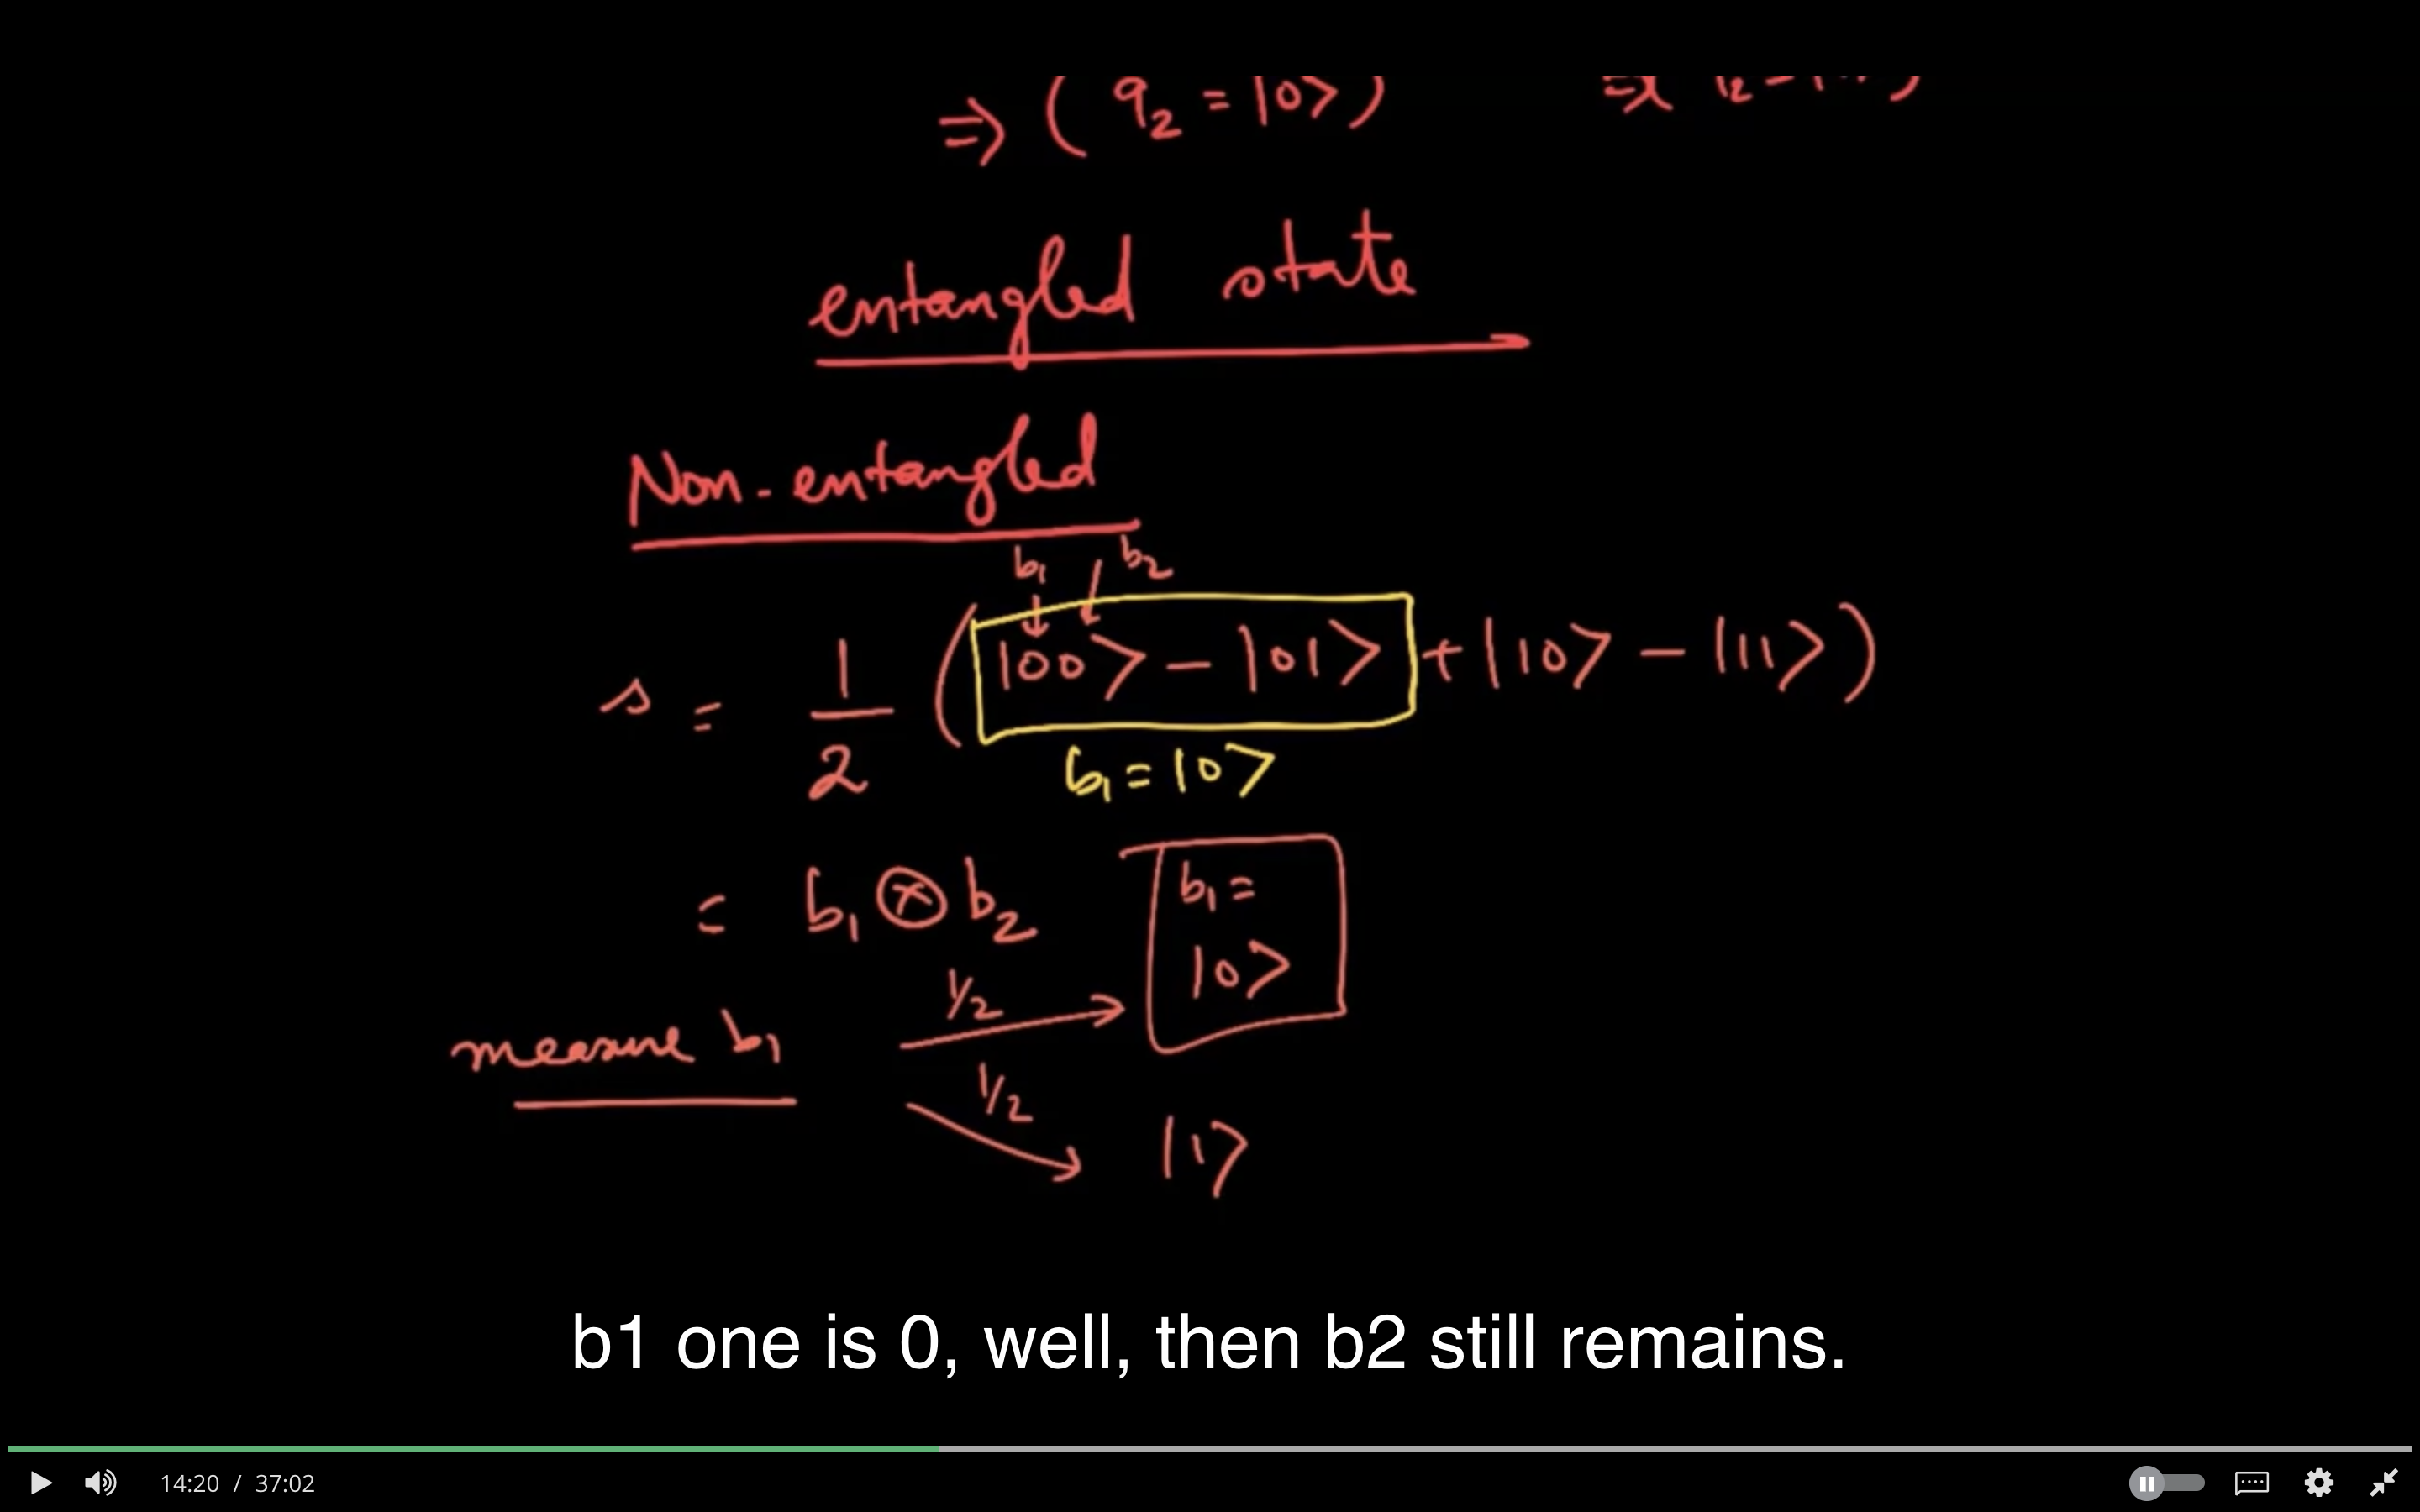 ⇒ (q₂ = |0⟩)
entangled state
Non-entangled
b₁ b₂
s = 1/2 (|00⟩ - |01⟩ + |10⟩ - |11⟩)
b₁ = |0⟩
= b₁ ⊗ b₂
b₁ =
|0⟩
1/2
measure b₁
1/2
|1⟩
b1 one is 0, well, then b2 still remains.
14:20 / 37:02